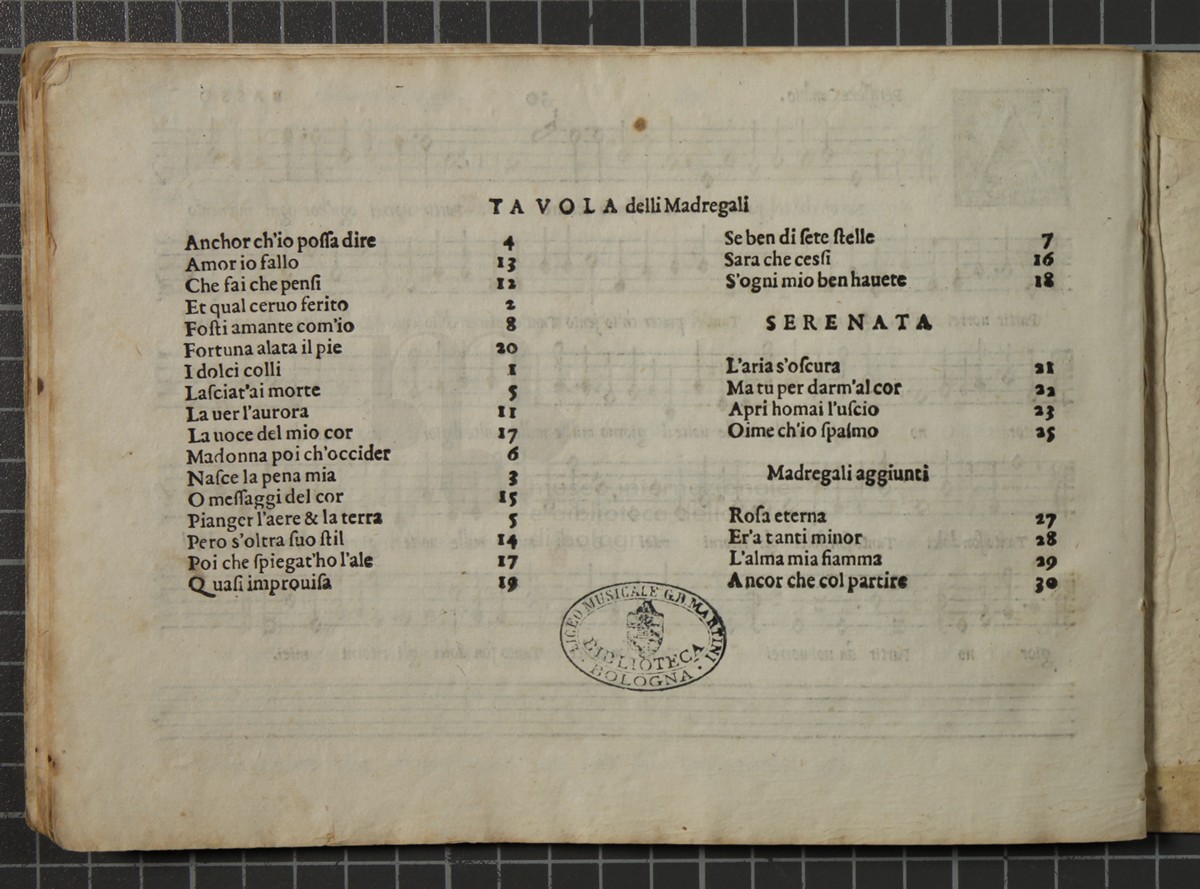 TAVOLA delli Madregali
Anchor ch'io poſſa dire 4
Amor io fallo 13
Che fai che penſi 12
Et qual ceruo ferito 2
Foſti amante com'io 8
Fortuna alata il pie 20
I dolci colli 1
Laſciat'ai morte 5
La uer l'aurora 11
La uoce del mio cor 17
Madonna poi ch'occider 6
Naſce la pena mia 3
O meſſaggi del cor 15
Pianger l'aere & la terra 5
Pero s'oltra ſuo ſtil 14
Poi che ſpiegat'ho l'ale 17
Quaſi improuiſa 19
Se ben di ſete ſtelle 7
Sara che cesſi 16
S'ogni mio ben hauete 18
SERENATA
L'aria s'oſcura 21
Ma tu per darm'al cor 22
Apri homai l'uſcio 23
Oime ch'io ſpaſmo 25
Madregali aggiunti
Roſa eterna 27
Er'a tanti minor 28
L'alma mia fiamma 29
Ancor che col partire 30
LICEO MUSICALE G.B. MARTINI
BIBLIOTECA
BOLOGNA